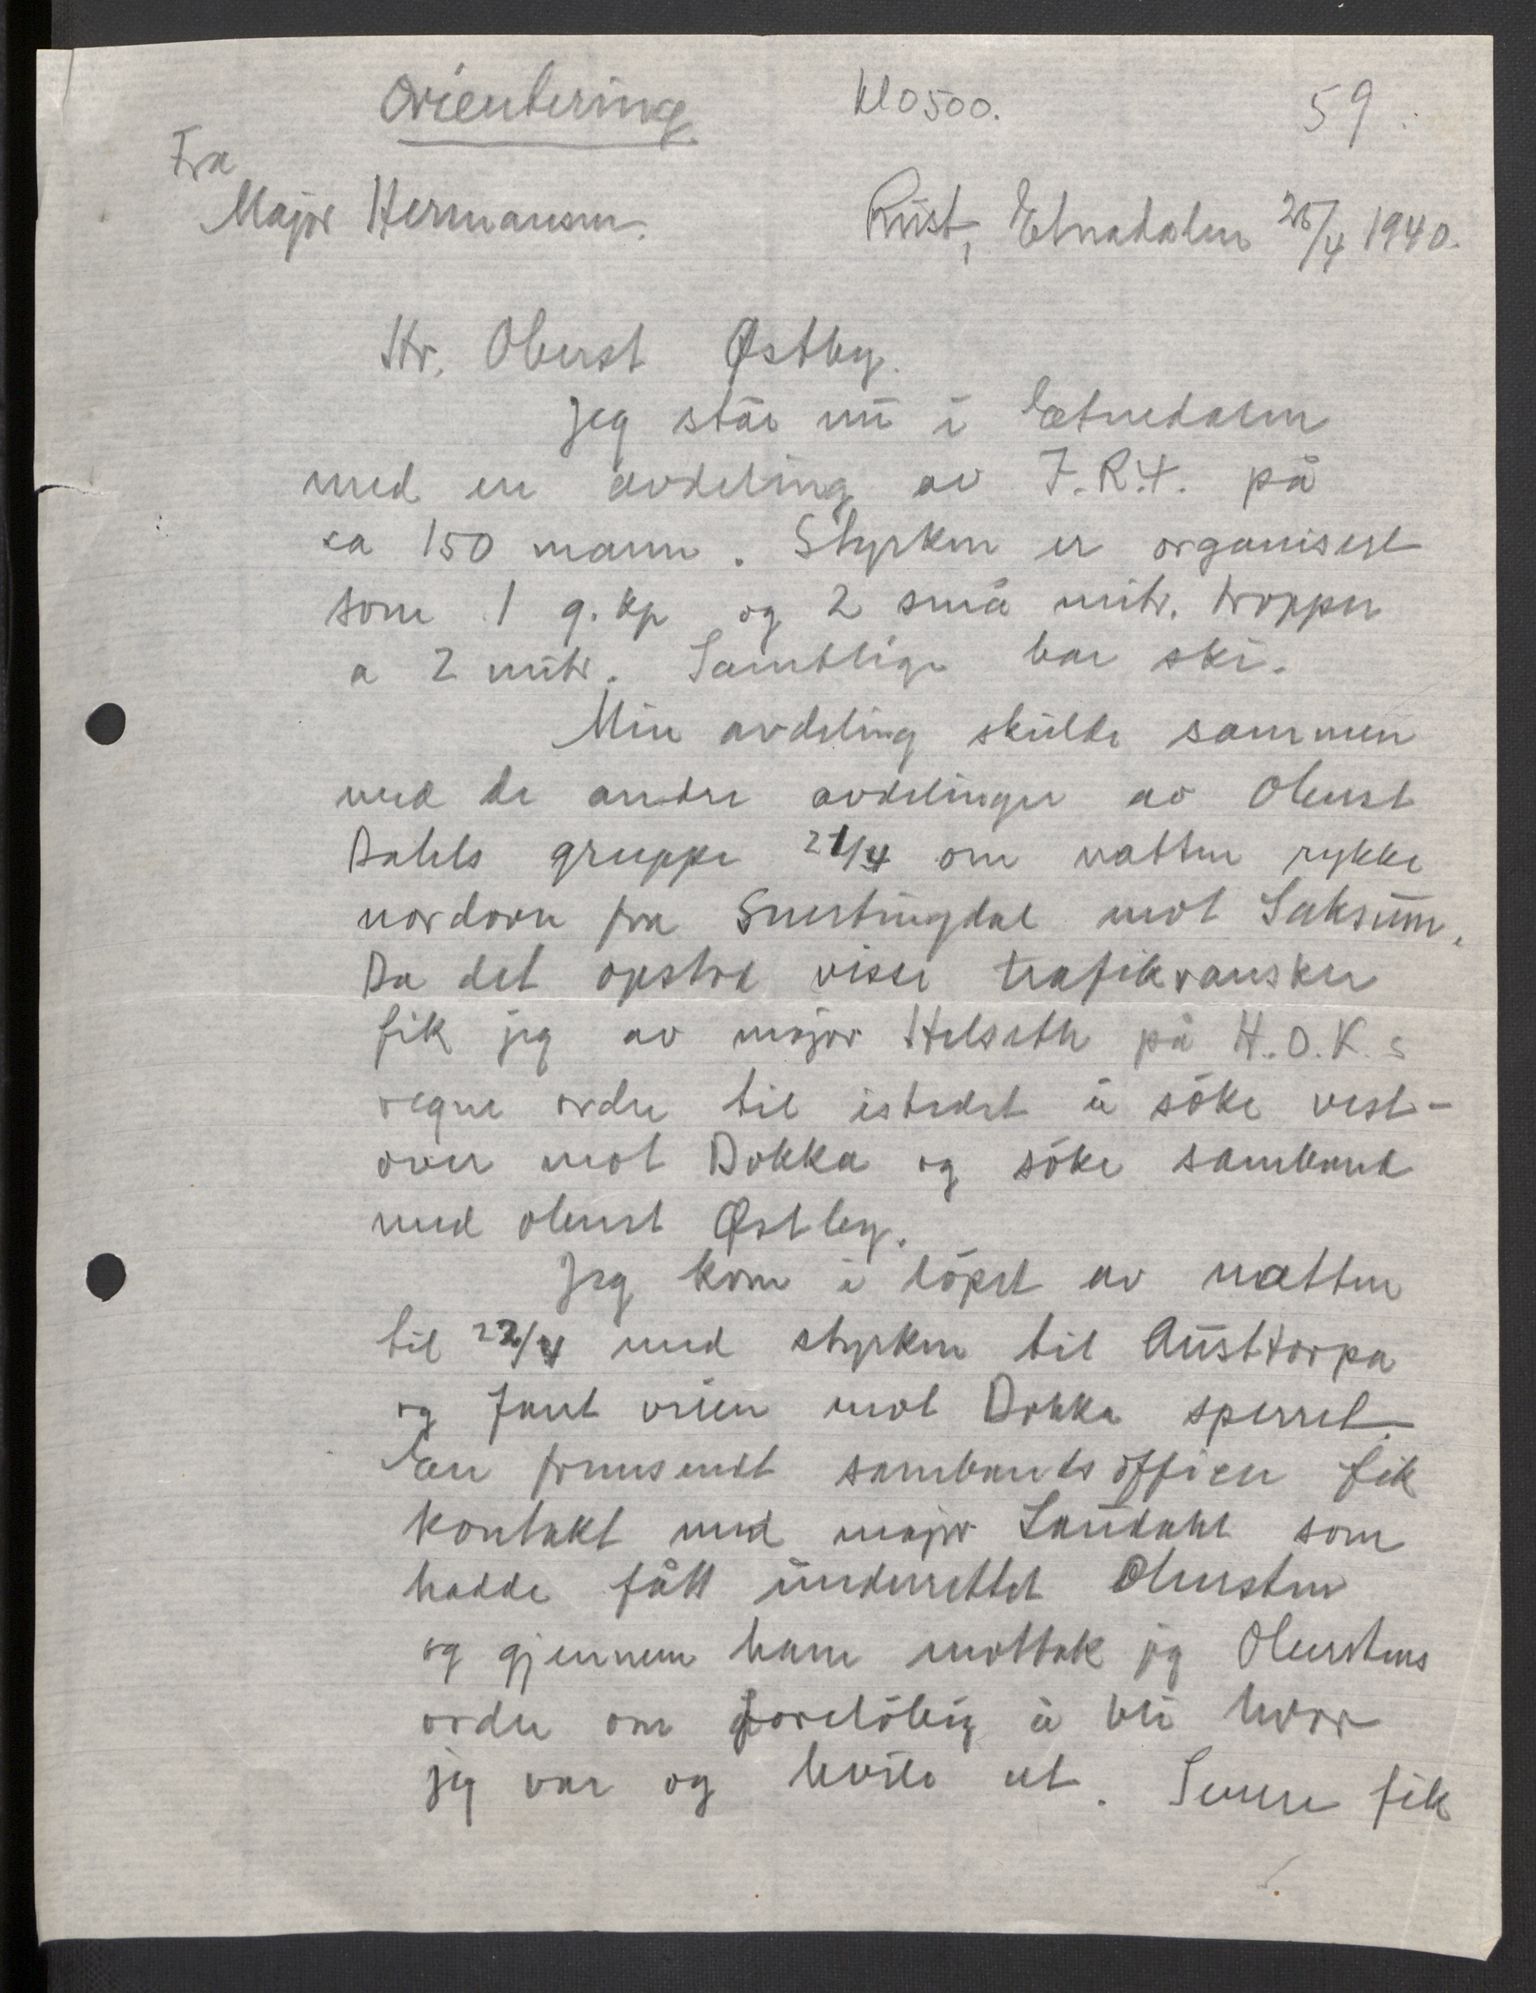 Orientering kl 0500. 59.
Fra
Major Hermansen. Rust, Etnadalen 25/4 1940.
Hr. Oberst Østby.
Jeg står nu i Etnedalen
med en avdeling av I.R.4. på
ca 150 mann. Styrken er organisert
som 1 g.kp og 2 små mitr. tropper
a 2 mitr. Samtlige har ski.
Min avdeling skulde sammen
med de andre avdelinger av Oberst
Dahls gruppe 21/4 om natten rykke
nordover fra Snertingdal mot Saksum.
Da det opstod visse trafikvansker
fik jeg av major Helseth på H.O.K.s
vegne ordre til istedet å söke vest-
over mot Dokka og söke samband
med oberst Østby.
Jeg kom i löpet av natten
til 22/4 med styrken til Austtorpa
og fant veien mot Dokka sperret.
En fremsendt sambandsofficer fik
kontakt med major Laudahl som
hadde fått underrettet Obersten
og gjennem ham mottok jeg Oberstens
ordre om forelöbig å bli hvor
jeg var og hvile ut. Senere fik